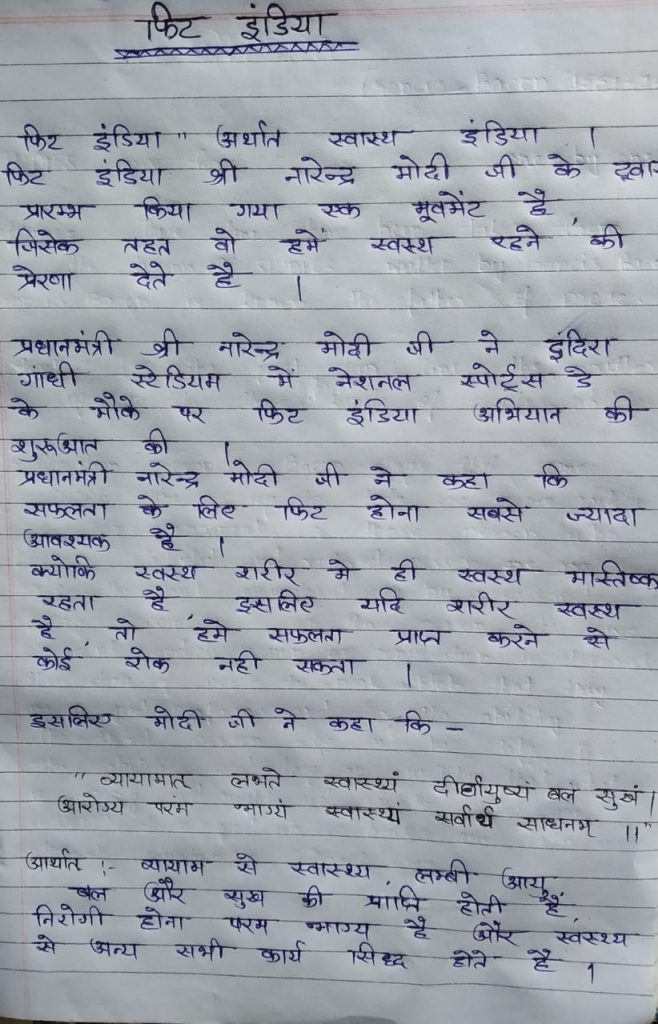 फिट इंडिया
फिट इंडिया" अर्थात स्वास्थ इंडिया |
फिट इंडिया श्री नारेन्द्र मोदी जी के द्वार
प्रारम्भ किया गया एक मूवमेंट है,
जिसेक तहत वो हमें स्वस्थ रहने की
प्रेरणा देते है |
प्रधानमंत्री श्री नारेन्द्र मोदी जी ने इंदिरा
गांधी स्टेडियम में नेशनल स्पोर्ट्स डे
के मौके पर फिट इंडिया अभियान की
शुरूआत की |
प्रधानमंत्री नारेन्द्र मोदी जी ने कहा कि
सफलता के लिए फिट होना सबसे ज्यादा
आवश्यक है |
क्योकि स्वस्थ शरीर मे ही स्वस्थ मास्तिष्क
रहता है, इसलिए यदि शरीर स्वस्थ
है, तो हमे सफलता प्राप्त करने से
कोई रोक नही सकता |
इसलिए मोदी जी ने कहा कि –
"व्यायामात लभते स्वास्थ्यं दीर्घायुष्यं बलं सुखं।
आरोग्य परंम भाग्यं स्वास्थ्यं सर्वार्थ साधनम ॥"
आर्थात :- व्यायाम से स्वास्थ्य, लम्बी आयु,
बल और सुख की प्राप्ति होती हैं,
निरोगी होना परम भाग्य है और स्वस्थ्य
से अन्य सभी कार्य सिध्द होते है |